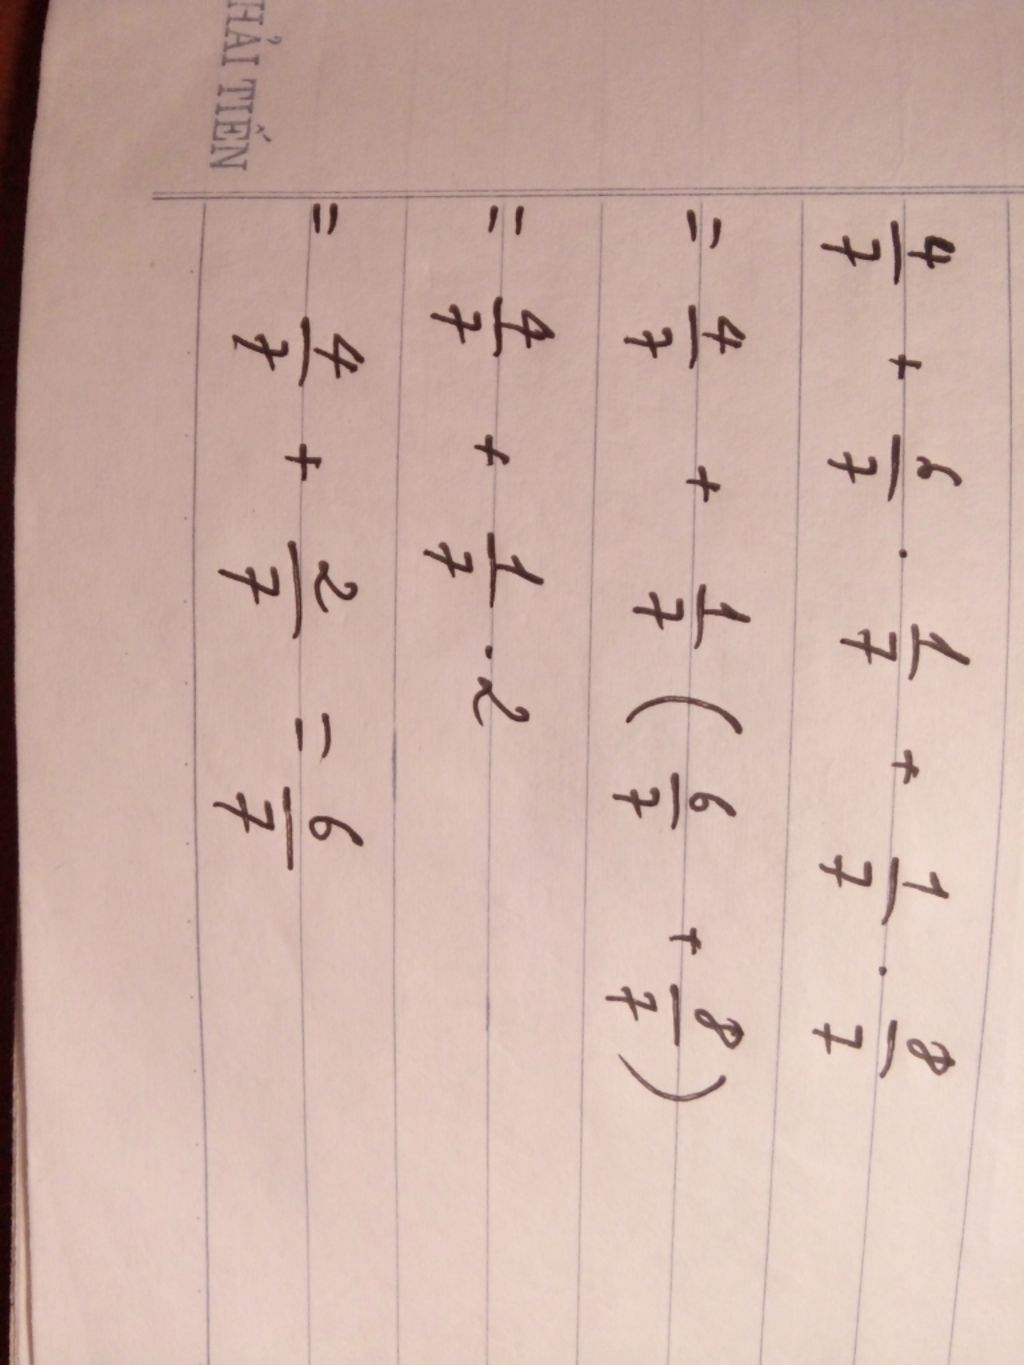 HẢI TIẾN
4/7 + 6/7 . 1/7 + 1/7 . 8/7
= 4/7 + 1/7 ( 6/7 + 8/7 )
= 4/7 + 1/7 . 2
= 4/7 + 2/7 = 6/7